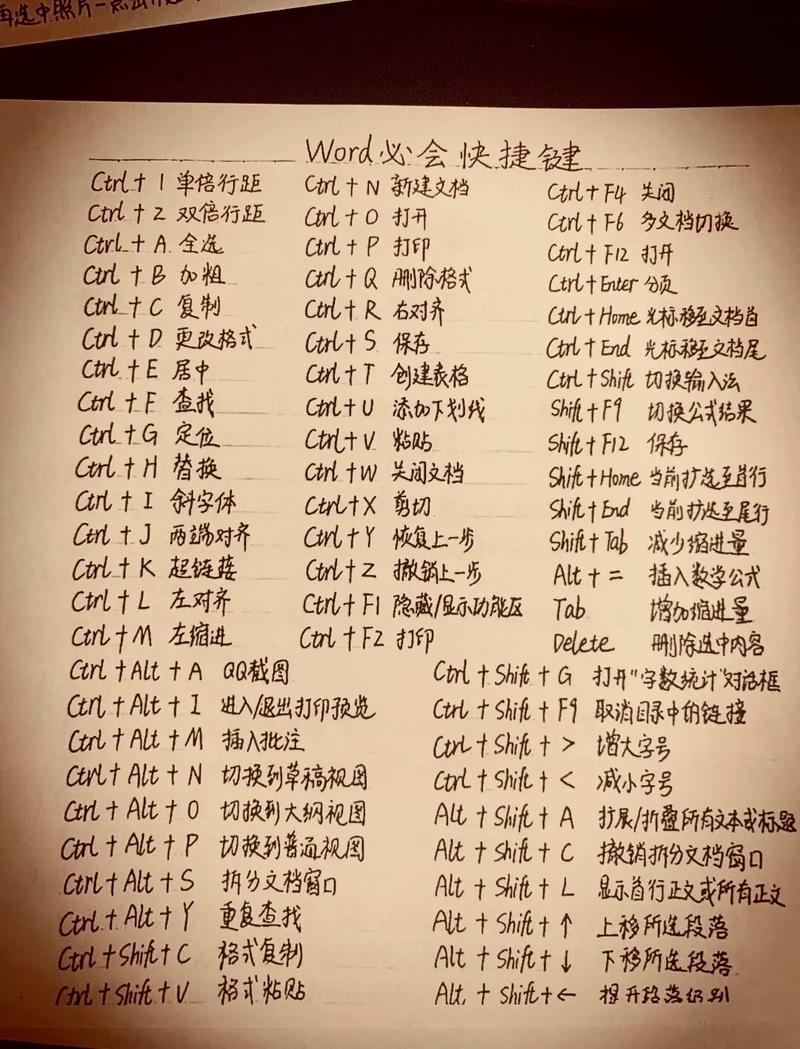 再选中照片一点击
Word必会快捷键
Ctrl+1 单倍行距
Ctrl+2 双倍行距
Ctrl+A 全选
Ctrl+B 加粗
Ctrl+C 复制
Ctrl+D 更改格式
Ctrl+E 居中
Ctrl+F 查找
Ctrl+G 定位
Ctrl+H 替换
Ctrl+I 斜字体
Ctrl+J 两端对齐
Ctrl+K 超链接
Ctrl+L 左对齐
Ctrl+M 左缩进
Ctrl+N 新建文档
Ctrl+O 打开
Ctrl+P 打印
Ctrl+Q 删除格式
Ctrl+R 右对齐
Ctrl+S 保存
Ctrl+T 创建表格
Ctrl+U 添加下划线
Ctrl+V 粘贴
Ctrl+W 关闭文档
Ctrl+X 剪切
Ctrl+Y 恢复上一步
Ctrl+Z 撤销上一步
Ctrl+F1 隐藏/显示功能区
Ctrl+F2 打印
Ctrl+F4 关闭
Ctrl+F6 多文档切换
Ctrl+F12 打开
Ctrl+Enter 分页
Ctrl+Home 光标移至文档首
Ctrl+End 光标移至文档尾
Ctrl+Shift 切换输入法
Shift+F9 切换公式结果
Shift+F12 保存
Shift+Home 当前扩选至首行
Shift+End 当前扩选至尾行
Shift+Tab 减少缩进量
Alt+= 插入数学公式
Tab 增加缩进量
Delete 删除选中内容
Ctrl+Alt+A QQ截图
Ctrl+Alt+I 进入/退出打印预览
Ctrl+Alt+M 插入批注
Ctrl+Alt+N 切换到草稿视图
Ctrl+Alt+O 切换到大纲视图
Ctrl+Alt+P 切换到普通视图
Ctrl+Alt+S 拆分文档窗口
Ctrl+Alt+Y 重复查找
Ctrl+Shift+C 格式复制
Ctrl+Shift+V 格式粘贴
Ctrl+Shift+G 打开"字数统计"对话框
Ctrl+Shift+F9 取消目录中的链接
Ctrl+Shift+> 增大字号
Ctrl+Shift+< 减小字号
Alt+Shift+A 扩展/折叠所有文本或标题
Alt+Shift+C 撤销拆分文档窗口
Alt+Shift+L 显示首行正文或所有正文
Alt+Shift+↑ 上移所选段落
Alt+Shift+↓ 下移所选段落
Alt+Shift+← 提升段落级别